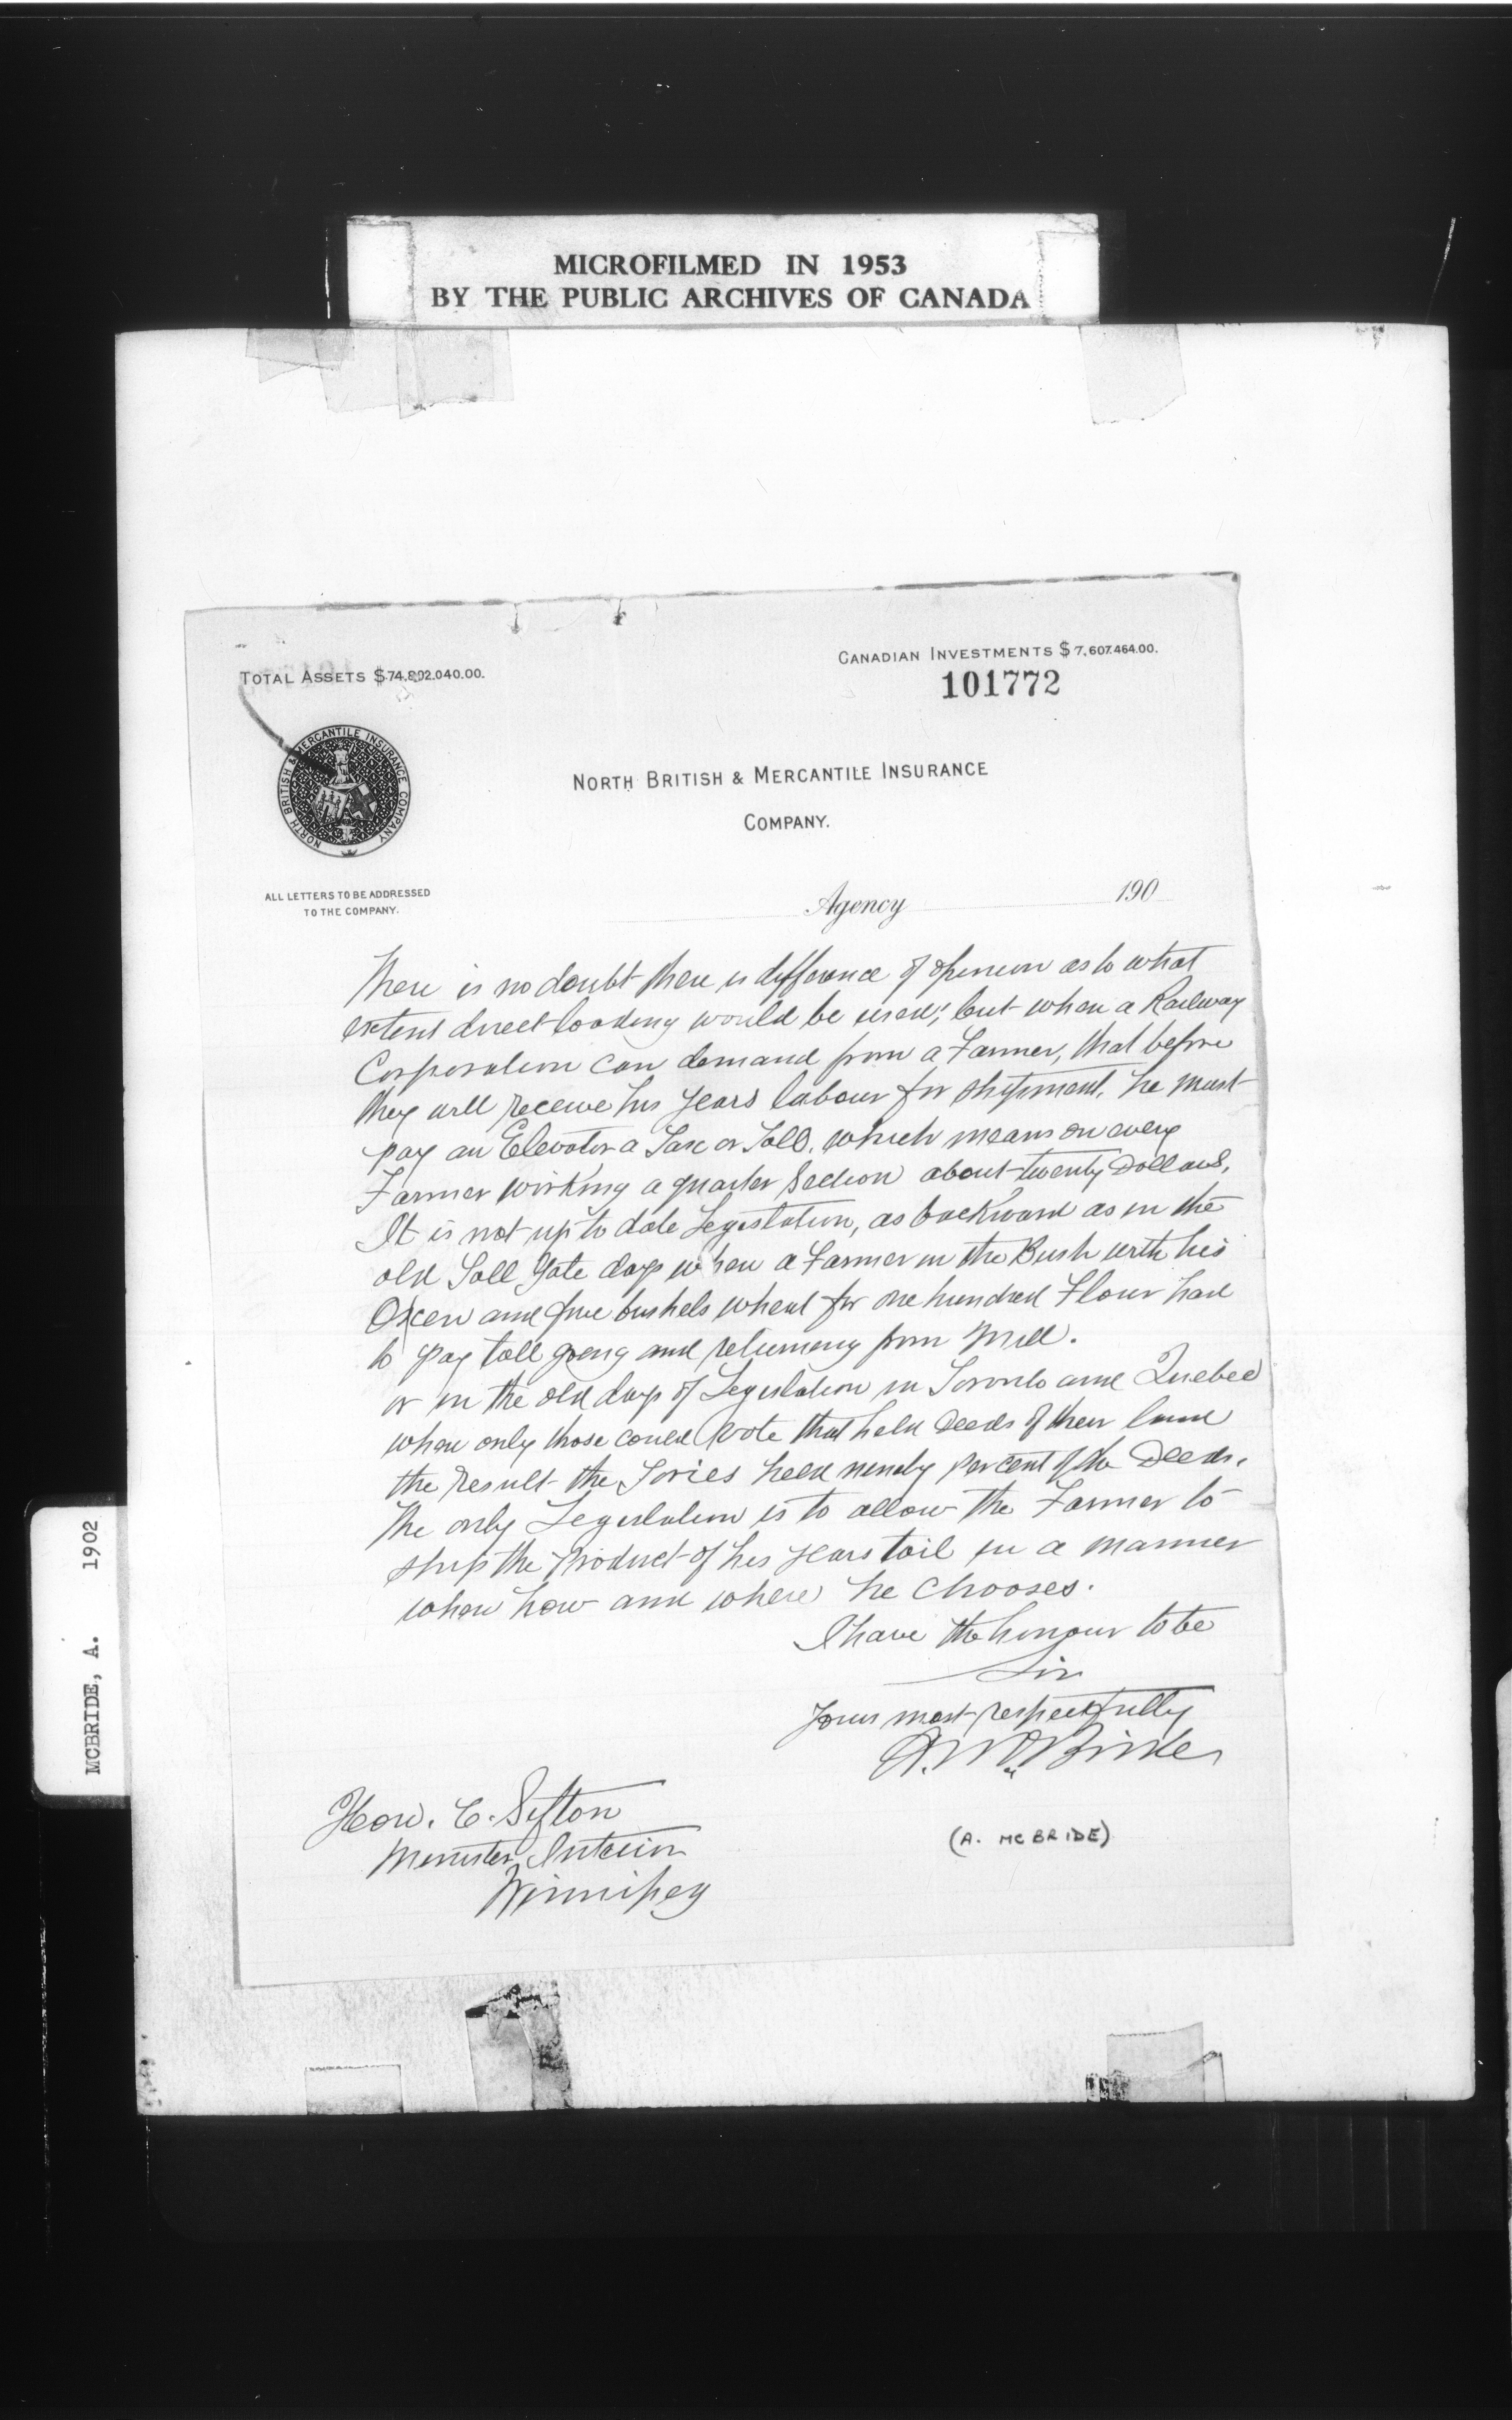 MICROFILMED IN 1953
BY THE PUBLIC ARCHIVES OF CANADA
TOTAL ASSETS $74,802,040.00.
CANADIAN INVESTMENTS $7,607,464.00.
101772
NORTH BRITISH & MERCANTILE INSURANCE COMPANY
NORTH BRITISH & MERCANTILE INSURANCE
COMPANY.
ALL LETTERS TO BE ADDRESSED
TO THE COMPANY.
Agency 190
There is no doubt there is difference of opinion as to what
extent direct loading would be used; but when a Railway
Corporation can demand from a Farmer, that before
they will receive his years labour for shipment, he must
pay an Elevator a Tax or Toll, which means on every
Farmer working a quarter Section about twenty Dollars,
It is not up to date Legislation, as backward as in the
old Toll Gate days when a Farmer in the Bush with his
Oxen and five bushels wheat for one hundred Flour had
to pay toll going and returning from Mill.
or in the old days of Legislation in Toronto and Quebec
when only those could vote that held Deeds of their land
the result the Tories held ninety per cent of the Deeds.
The only Legislation is to allow the Farmer to
ship the Product of his years toil in a manner
when how and where he chooses.
I have the honour to be
Sir
Yours most respectfully
A. McBride
Hon. C. Sifton
Minister Interior
Winnipeg
(A. MCBRIDE)
MCBRIDE, A. 1902